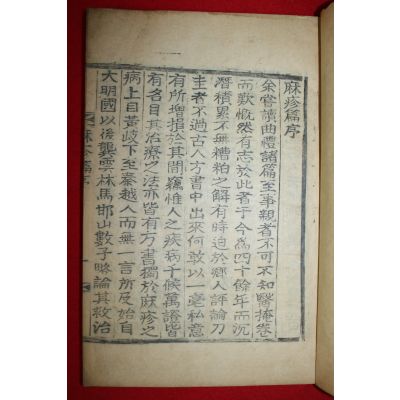 麻疹篇序
余嘗讀曲禮諸篇至事親者不可不知醫掩卷
而歎慨然有志於此者于今爲四十餘年而沉
潛積累不無糟粕之解有時迫於鄉人評論刀
圭者不過古人方書中出來何敢以一毫私意
有所增損於其間竊惟人之疾病千候萬證皆
有各目其治療之法亦皆有方書獨於麻疹之
病上自黃岐下至秦越人而無一言所及始自
大明國以後龔雲林馬邯山數子略論其救治
麻疹篇序